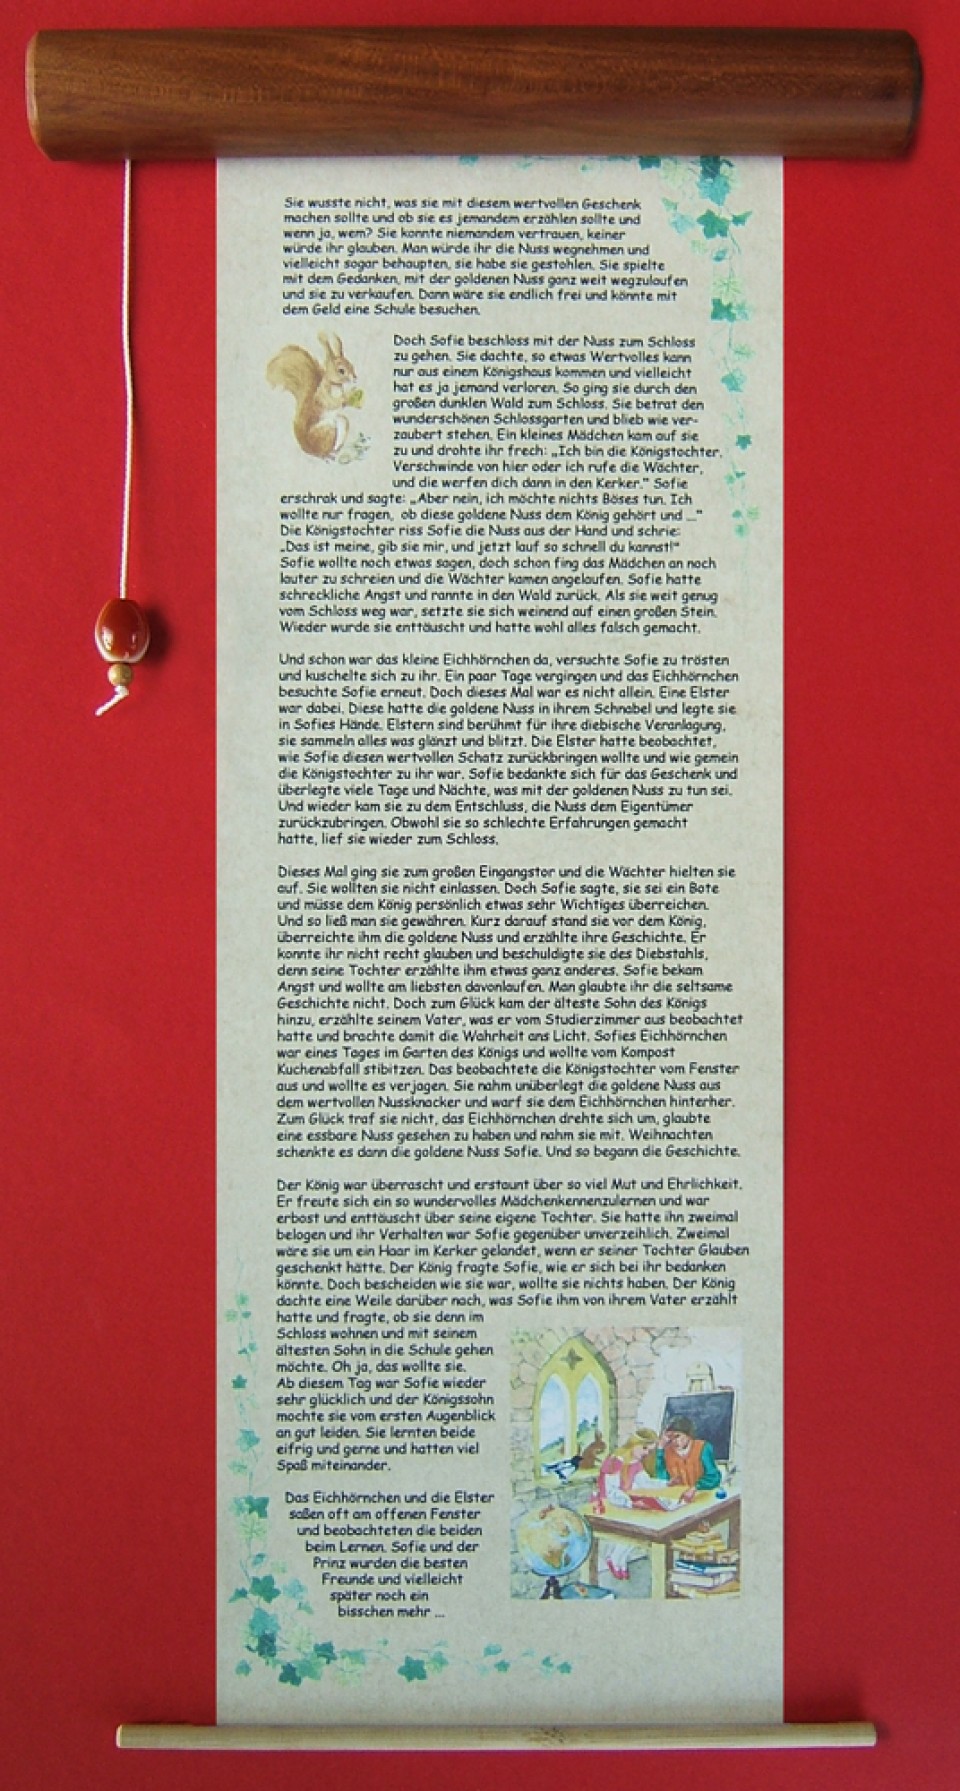 Sie wusste nicht, was sie mit diesem wertvollen Geschenk
machen sollte und ob sie es jemandem erzählen sollte und
wenn ja, wem? Sie konnte niemandem vertrauen, keiner
würde ihr glauben. Man würde ihr die Nuss wegnehmen und
vielleicht sogar behaupten, sie habe sie gestohlen. Sie spielte
mit dem Gedanken, mit der goldenen Nuss ganz weit wegzulaufen
und sie zu verkaufen. Dann wäre sie endlich frei und könnte mit
dem Geld eine Schule besuchen.
Doch Sofie beschloss mit der Nuss zum Schloss
zu gehen. Sie dachte, so etwas Wertvolles kann
nur aus einem Königshaus kommen und vielleicht
hat es ja jemand verloren. So ging sie durch den
großen dunklen Wald zum Schloss. Sie betrat den
wunderschönen Schlossgarten und blieb wie ver-
zaubert stehen. Ein kleines Mädchen kam auf sie
zu und drohte ihr frech: „Ich bin die Königstochter.
Verschwinde von hier oder ich rufe die Wächter,
und die werfen dich dann in den Kerker." Sofie
erschrak und sagte: „Aber nein, ich möchte nichts Böses tun. Ich
wollte nur fragen, ob diese goldene Nuss dem König gehört und ..."
Die Königstochter riss Sofie die Nuss aus der Hand und schrie:
„Das ist meine, gib sie mir, und jetzt lauf so schnell du kannst!"
Sofie wollte noch etwas sagen, doch schon fing das Mädchen an noch
lauter zu schreien und die Wächter kamen angelaufen. Sofie hatte
schreckliche Angst und rannte in den Wald zurück. Als sie weit genug
vom Schloss weg war, setzte sie sich weinend auf einen großen Stein.
Wieder wurde sie enttäuscht und hatte wohl alles falsch gemacht.
Und schon war das kleine Eichhörnchen da, versuchte Sofie zu trösten
und kuschelte sich zu ihr. Ein paar Tage vergingen und das Eichhörnchen
besuchte Sofie erneut. Doch dieses Mal war es nicht allein. Eine Elster
war dabei. Diese hatte die goldene Nuss in ihrem Schnabel und legte sie
in Sofies Hände. Elstern sind berühmt für ihre diebische Veranlagung,
sie sammeln alles was glänzt und blitzt. Die Elster hatte beobachtet,
wie Sofie diesen wertvollen Schatz zurückbringen wollte und wie gemein
die Königstochter zu ihr war. Sofie bedankte sich für das Geschenk und
überlegte viele Tage und Nächte, was mit der goldenen Nuss zu tun sei.
Und wieder kam sie zu dem Entschluss, die Nuss dem Eigentümer
zurückzubringen. Obwohl sie so schlechte Erfahrungen gemacht
hatte, lief sie wieder zum Schloss.
Dieses Mal ging sie zum großen Eingangstor und die Wächter hielten sie
auf. Sie wollten sie nicht einlassen. Doch Sofie sagte, sie sei ein Bote
und müsse dem König persönlich etwas sehr Wichtiges überreichen.
Und so ließ man sie gewähren. Kurz darauf stand sie vor dem König,
überreichte ihm die goldene Nuss und erzählte ihre Geschichte. Er
konnte ihr nicht recht glauben und beschuldigte sie des Diebstahls,
denn seine Tochter erzählte ihm etwas ganz anderes. Sofie bekam
Angst und wollte am liebsten davonlaufen. Man glaubte ihr die seltsame
Geschichte nicht. Doch zum Glück kam der älteste Sohn des Königs
hinzu, erzählte seinem Vater, was er vom Studierzimmer aus beobachtet
hatte und brachte damit die Wahrheit ans Licht. Sofies Eichhörnchen
war eines Tages im Garten des Königs und wollte vom Kompost
Kuchenabfall stibitzen. Das beobachtete die Königstochter vom Fenster
aus und wollte es verjagen. Sie nahm unüberlegt die goldene Nuss aus
dem wertvollen Nussknacker und warf sie dem Eichhörnchen hinterher.
Zum Glück traf sie nicht, das Eichhörnchen drehte sich um, glaubte
eine essbare Nuss gesehen zu haben und nahm sie mit. Weihnachten
schenkte es dann die goldene Nuss Sofie. Und so begann die Geschichte.
Der König war überrascht und erstaunt über so viel Mut und Ehrlichkeit.
Er freute sich ein so wundervolles Mädchenkennenzulernen und war
erbost und enttäuscht über seine eigene Tochter. Sie hatte ihn zweimal
belogen und ihr Verhalten war Sofie gegenüber unverzeihlich. Zweimal
wäre sie um ein Haar im Kerker gelandet, wenn er seiner Tochter Glauben
geschenkt hätte. Der König fragte Sofie, wie er sich bei ihr bedanken
könnte. Doch bescheiden wie sie war, wollte sie nichts haben. Der König
dachte eine Weile darüber nach, was Sofie ihm von ihrem Vater erzählt
hatte und fragte, ob sie denn im
Schloss wohnen und mit seinem
ältesten Sohn in die Schule gehen
möchte. Oh ja, das wollte sie.
Ab diesem Tag war Sofie wieder
sehr glücklich und der Königssohn
mochte sie vom ersten Augenblick
an gut leiden. Sie lernten beide
eifrig und gerne und hatten viel
Spaß miteinander.
Das Eichhörnchen und die Elster
saßen oft am offenen Fenster
und beobachteten die beiden
beim Lernen. Sofie und der
Prinz wurden die besten
Freunde und vielleicht
später noch ein
bisschen mehr ...